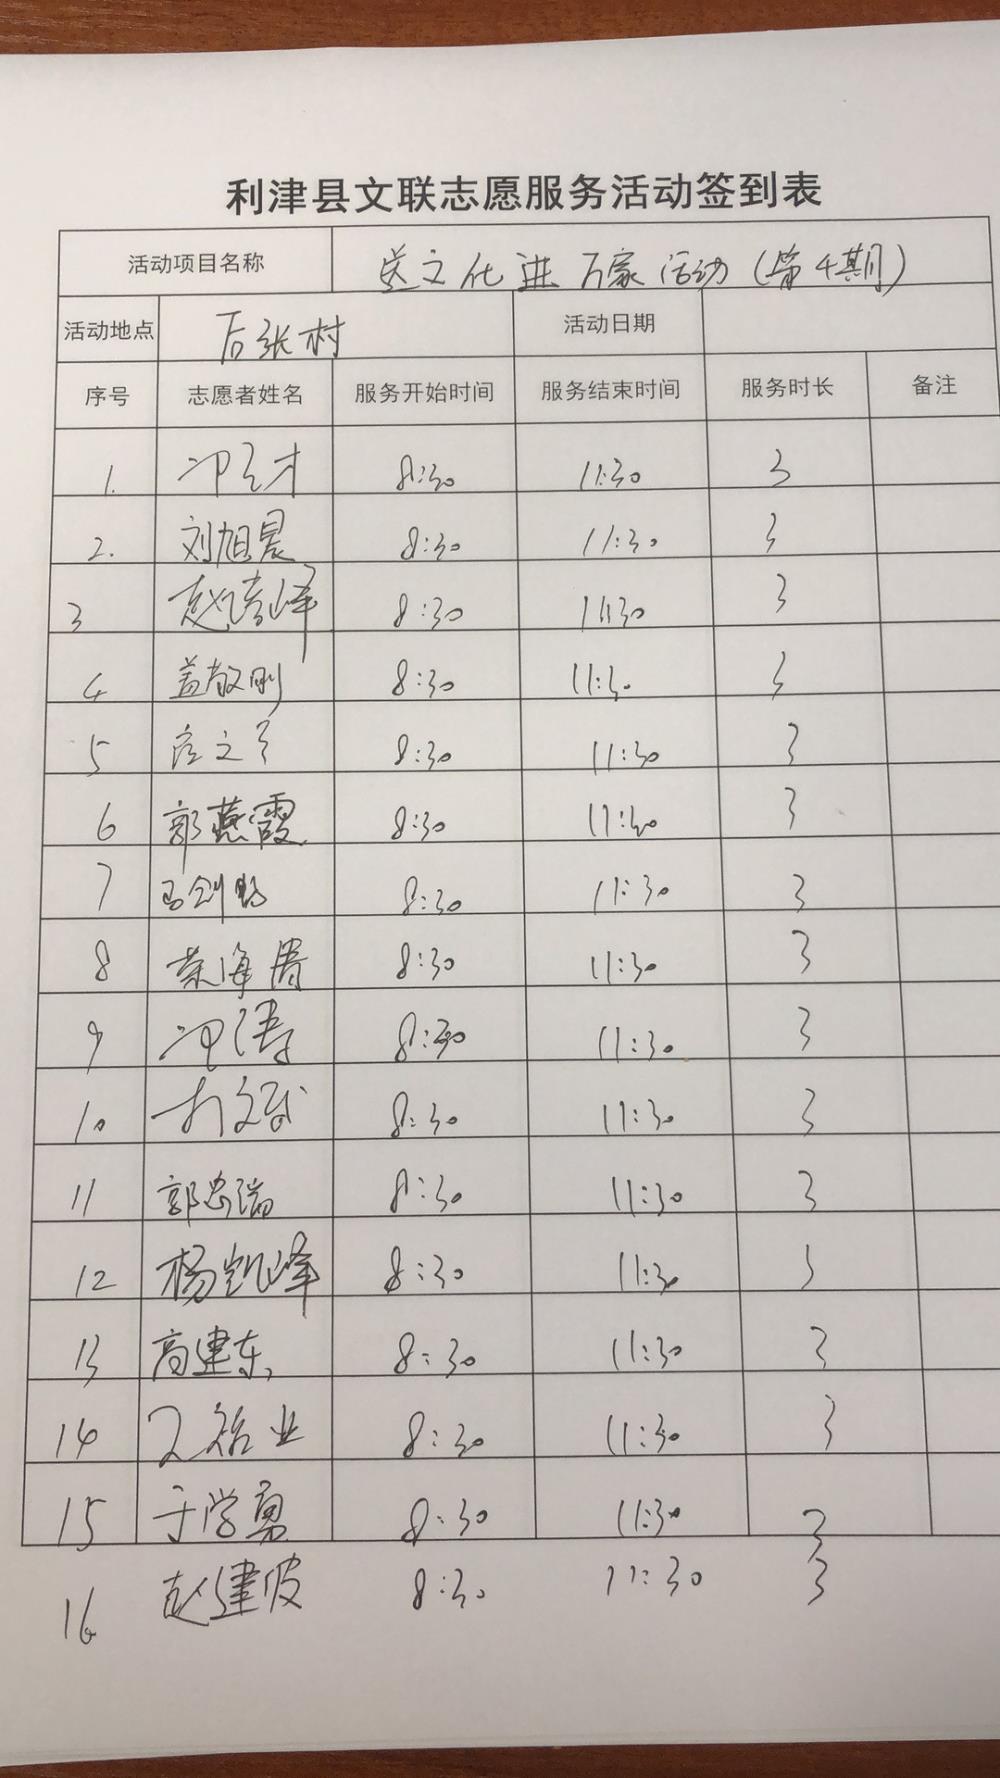 利津县文联志愿服务活动签到表
活动项目名称 送文化进万家活动(第4期)
活动地点 后张村 活动日期
序号 志愿者姓名 服务开始时间 服务结束时间 服务时长 备注
1. 8:30 11:30 3
2. 刘旭晨 8:30 11:30 3
3 8:30 11:30 3
4 盖敬刚 8:30 11:30 3
5 8:30 11:30 3
6 郭燕霞 8:30 11:30 3
7 8:30 11:30 3
8 8:30 11:30 3
9 8:30 11:30 3
10 8:30 11:30 3
11 郭忠瑞 8:30 11:30 3
12 杨凯峰 8:30 11:30 3
13 高建东 8:30 11:30 3
14 8:30 11:30 3
15 于学勇 8:30 11:30 3
16 赵建波 8:30 11:30 3